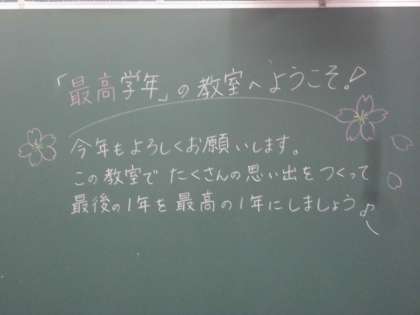 「最高学年」の教室へようこそ!
今年もよろしくお願いします。
この教室でたくさんの思い出をつくって
最後の1年を最高の1年にしましょう♪